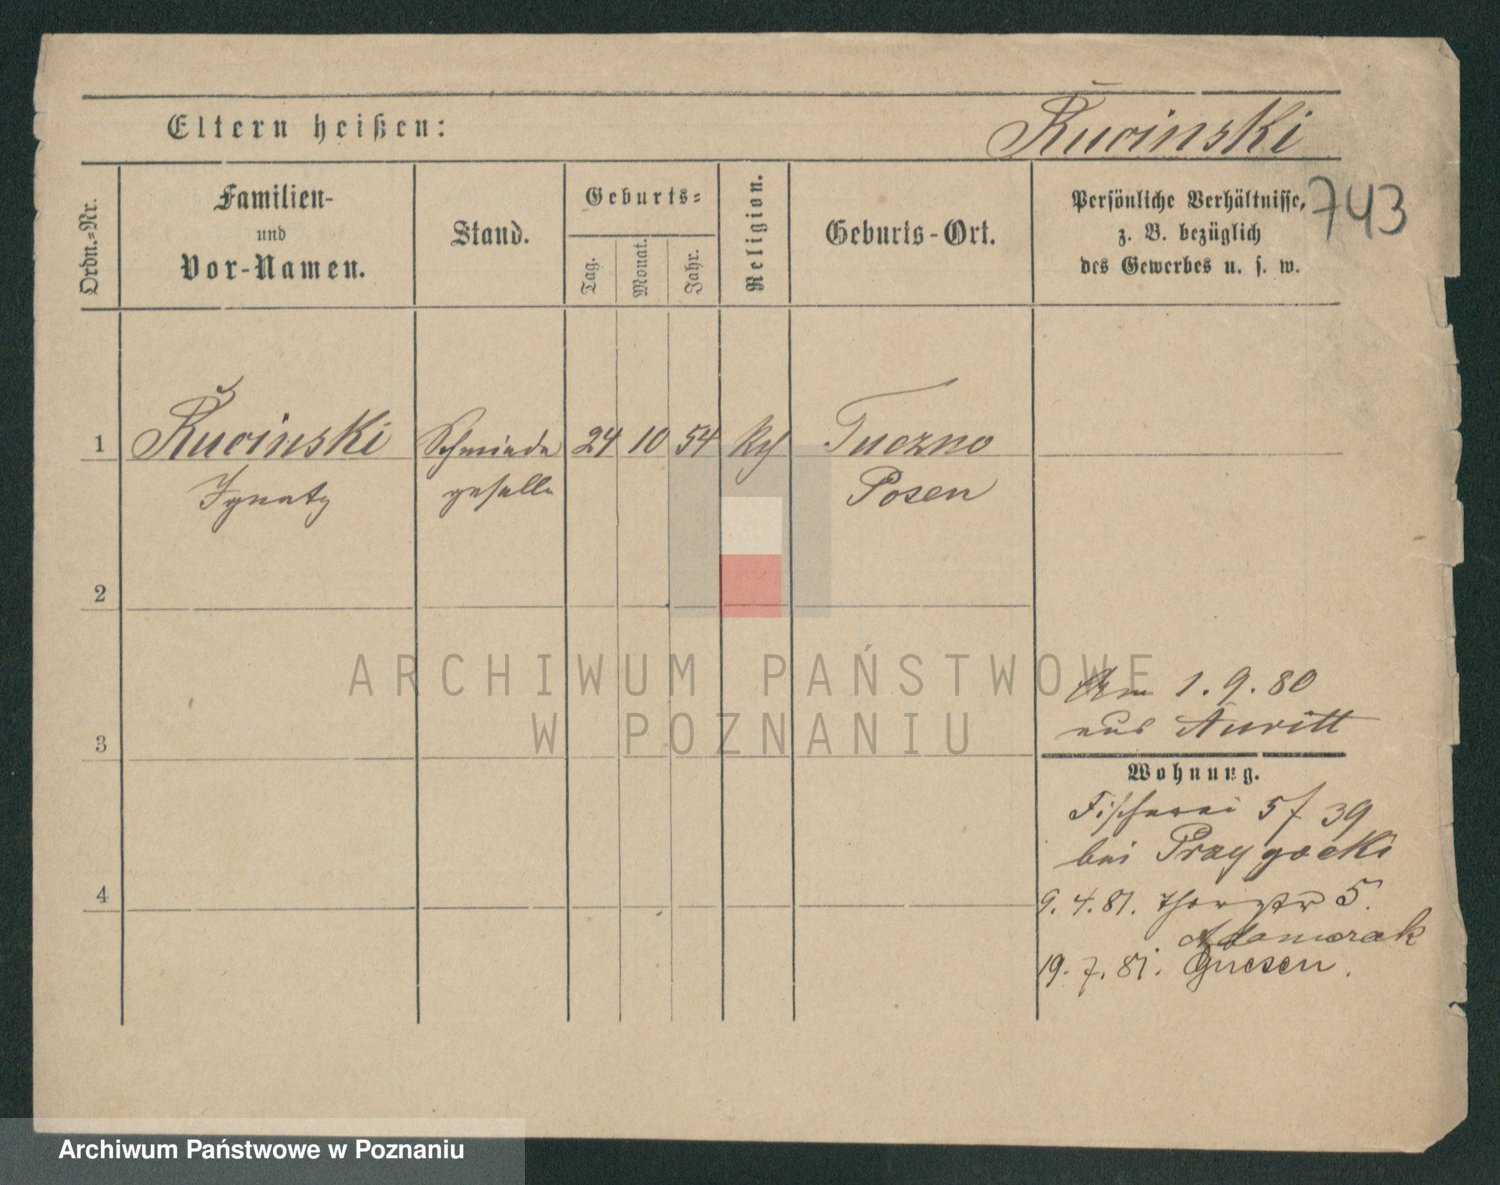 Eltern heißen:
Kucinski
743
Ordn.-Nr.
Familien-
und
Vor-Namen.
Stand.
Geburts-
Tag.
Monat.
Jahr.
Religion.
Geburts-Ort.
Persönliche Verhältnisse,
z. B. bezüglich
des Gewerbes u. s. w.
1 Kucinski Schmiede 24 10 54 Tuczno
Ignatz geselle Posen
2
3
4
Am 1.9.80
aus
Wohnung.
Fischerei 5 / 39
bei
9.4.81. 5.
19.7.81. Gnesen.
ARCHIWUM PAŃSTWOWE
W POZNANIU
Archiwum Państwowe w Poznaniu